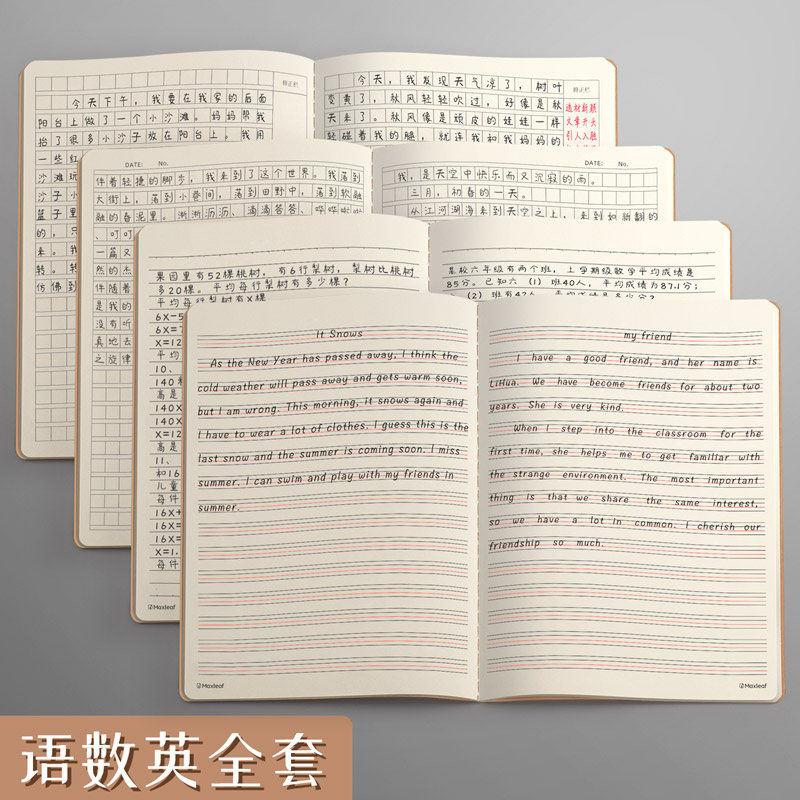 修正栏
今天下午，我要在我家的后面
阳台上做了一个小沙滩。妈妈帮我
抬了很多小沙子放在阳台上。我用
一些红
沙滩玩
沙子小
蓝子里
的，只
来。我
转。转
仿佛到
修正栏
今天，我发现天气凉了，树叶
变黄了，秋风轻轻吹过，好像是秋
天来了。秋风像是顽皮的娃娃一样
轻碰着我的腿，就连我和我妈妈的
选材新颖
文章开头
引人入胜
DATE: No.
伴着轻捷的脚步，我来到了这个世界。我荡到
大街上，荡到小巷间，荡到田野中，荡到软融
融的春泥里。淅淅沥沥、滴滴答答、哗哗啦啦
、叮叮
一篇又
然的杰
伴随着
是我的
没有听
真地去
之旋律
DATE: No.
我，是天空中快乐而又沉寂的雨。
三月，初春的一天。
从江河湖海来到天空之上，来到如新翻的
果园里有52棵桃树，有6行梨树，梨树比桃树
多20棵。平均每行梨树有多少棵？
平均每行梨树有X棵
6X-5
6X=7
X=12
平均
10、
140
高是
140X
140X
X=12
高是
11、
和16
儿童
每件
16X+
16X=
16X=
X=1.
每件
Maxleaf
某校六年级有两个班，上学期级数学平均成绩是
85分。已知六（1）班40人，平均成绩为87.1分；
（2）班有42人，平均成绩是多少分？
It Snows
As the New Year has passed away, I think the
cold weather will pass away and gets warm soon,
but I am wrong. This morning, it snows again and
I have to wear a lot of clothes. I guess this is the
last snow and the summer is coming soon. I miss
summer. I can swim and play with my friends in
summer.
Maxleaf
my friend
I have a good friend, and her name is
LiHua. We have become friends for about two
years. She is very kind.
When I step into the classroom for the
first time, she helps me to get familiar with
the strange environment. The most important
thing is that we share the same interest,
so we have a lot in common. I cherish our
friendship so much.
Maxleaf
语数英全套